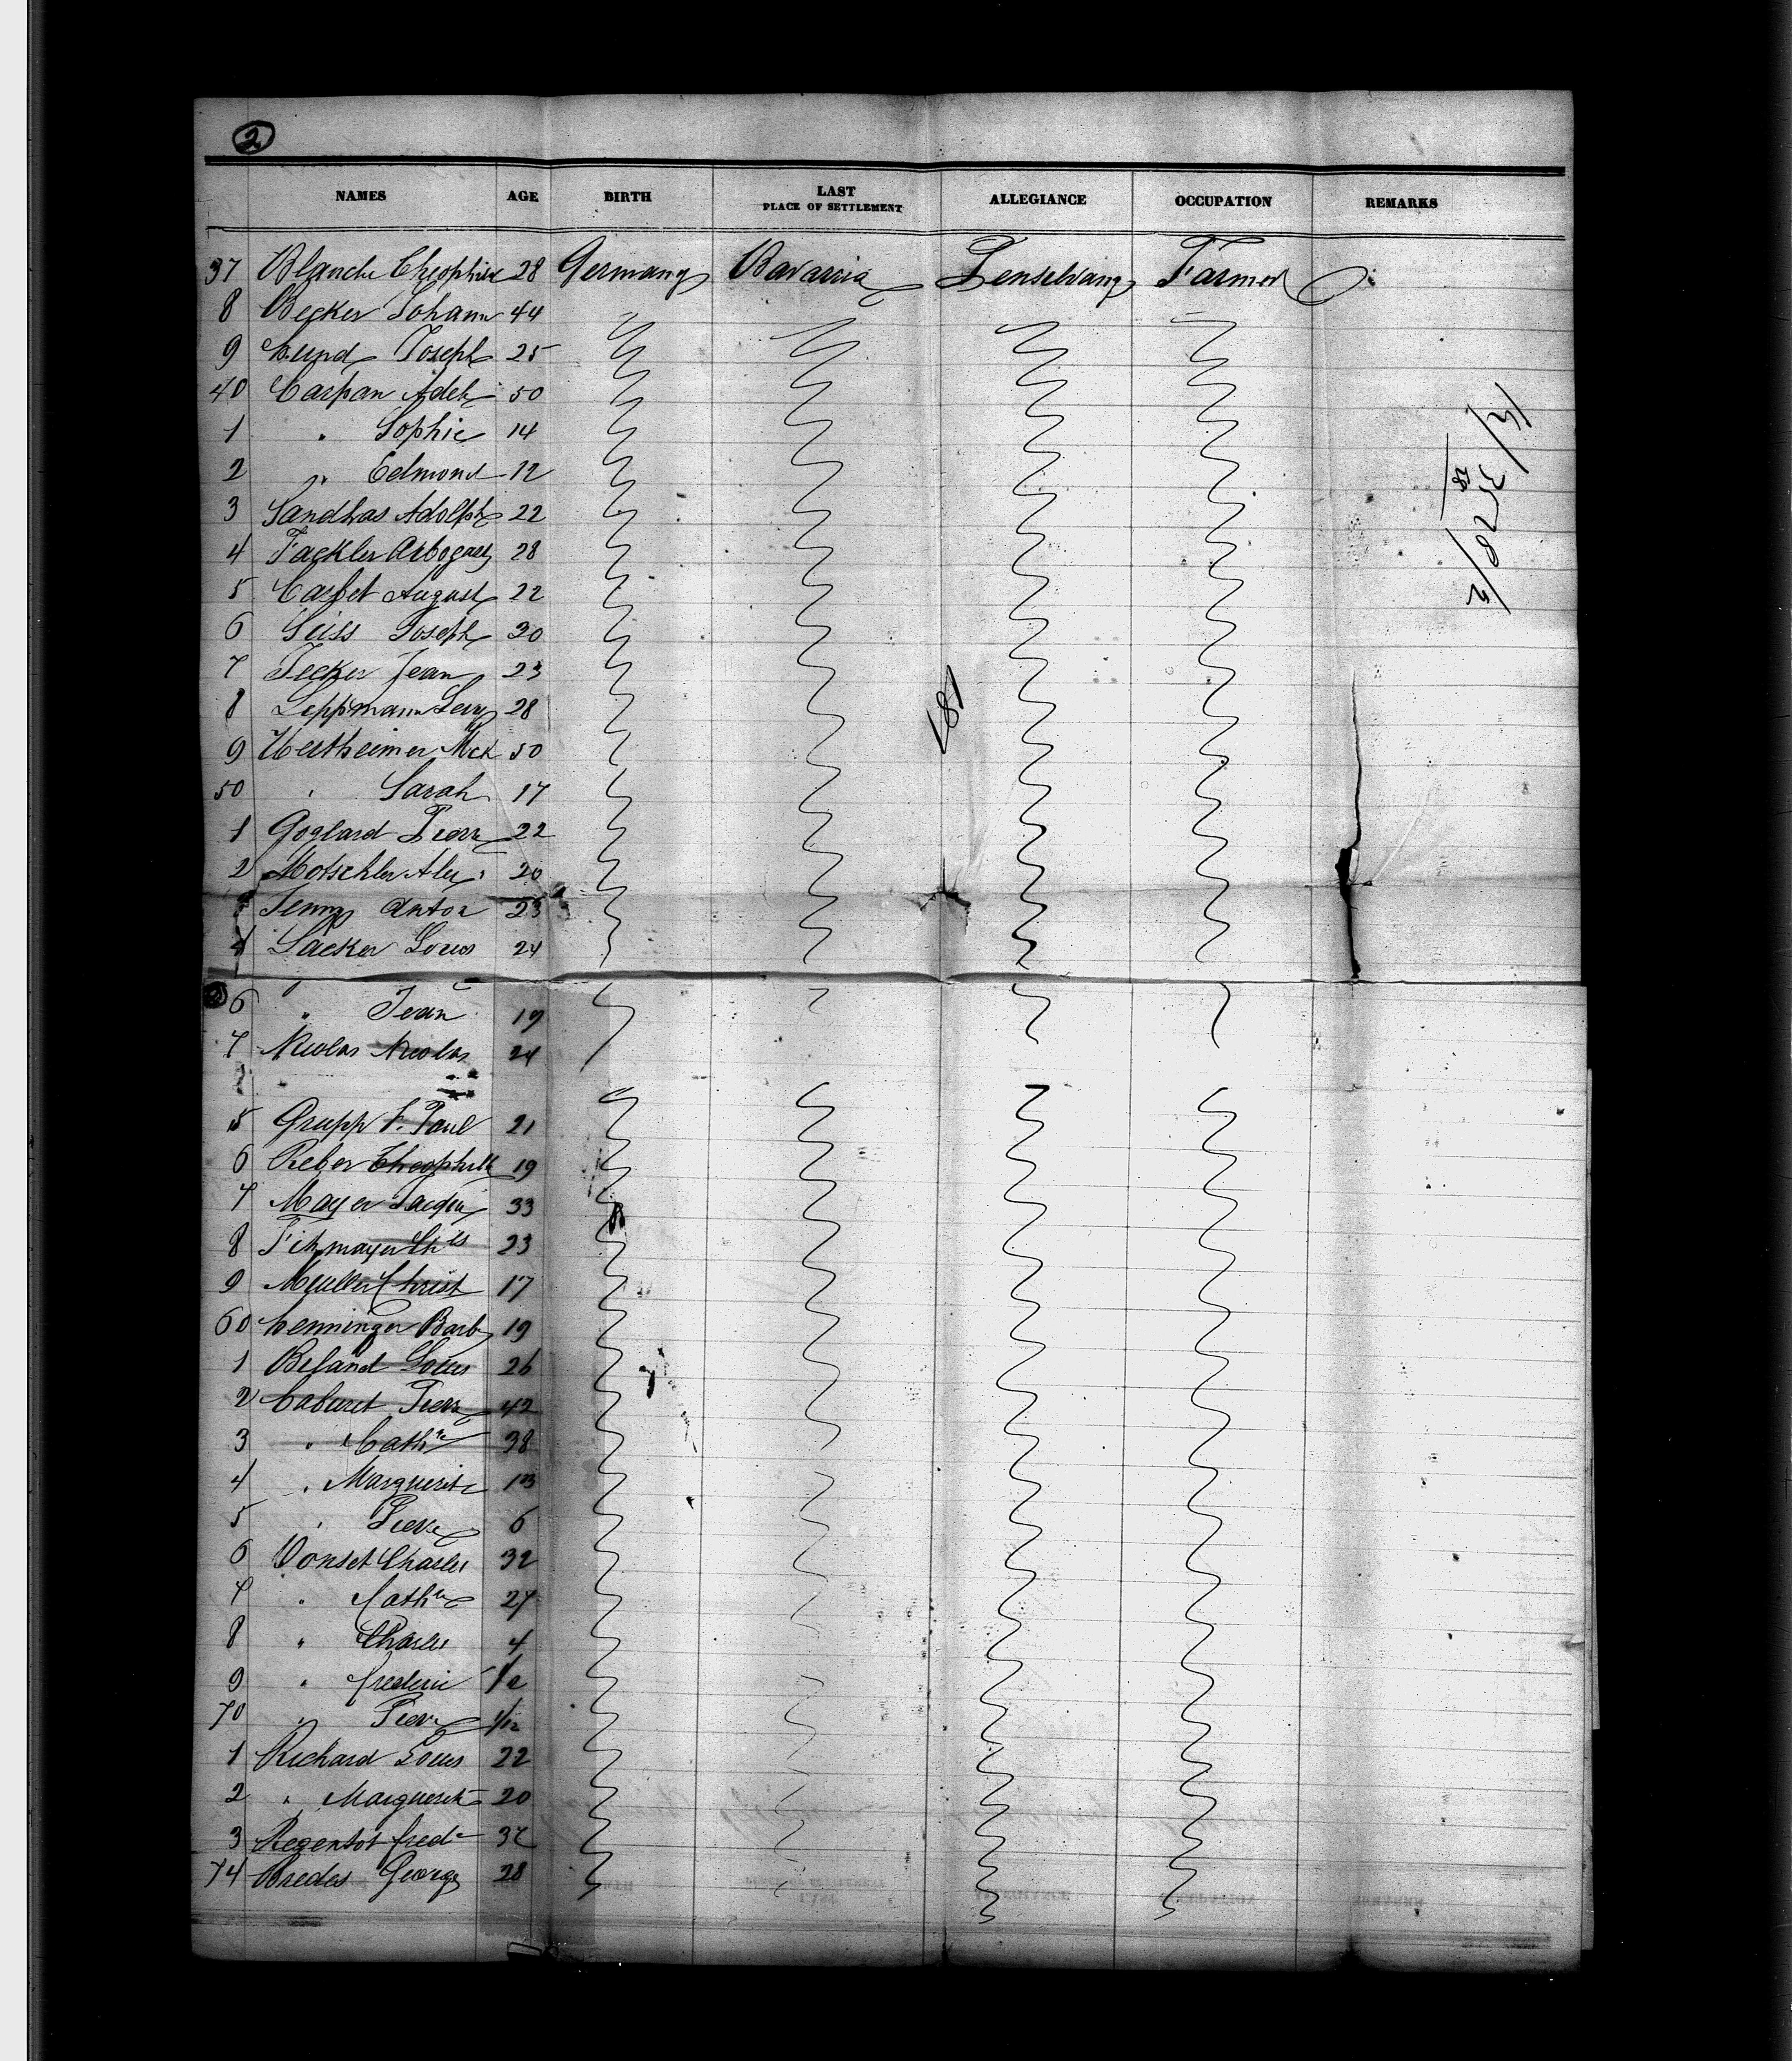 2
NAMES AGE BIRTH LAST PLACE OF SETTLEMENT ALLEGIANCE OCCUPATION REMARKS
37 Blanche Theophiel 28 Germany Bavaria Penselvany Farmer
8 Becker Johann 44
9 Hund Joseph 25
40 Carpan Adele 50
1 " Sophie 14
2 " Edmond 12
3 Sandhas Adolph 22
4 Fackler Arbogast 28
5 August 22
6 Joseph 30
7 Jean 23
8 Leppmann Levy 28
9 Wertheimer 50
50 " Sarah 17
1 Goglard Pierr 22
2 Motschler Alex 20
Jenny Anton 23
4 Sacker Louis 24
6 " Jean 19
7 Nicolas Nicolas 24
5 Grupp F. Paul 21
6 Reber Theophille 19
7 Mayer 33
8 Fitzmayer Chles 23
9 Muller Christ 17
60 Henninger Barb 19
1 Beland Louis 26
2 Cabaret Pierr 42
3 " Cathne 38
4 " Marguerite 13
5 " Pierre 6
6 Vonset Charles 32
7 " Cathne 27
8 " Charles 4
9 " frederic 1/2
70 " Pierre 1/12
1 Richard Louis 22
2 " Marguerite 20
3 fred 32
74 George 28
187